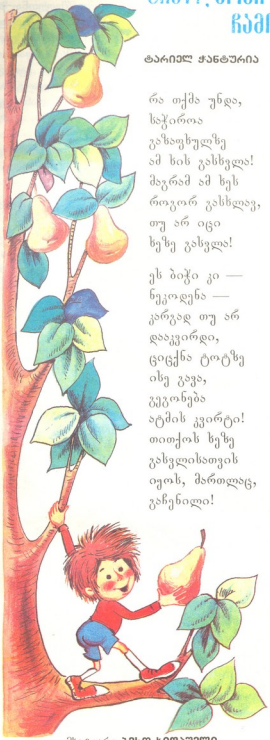 ტარიელ ჭანტურია
რა თქმა უნდა,
საჭიროა
გაზაფხულზე
ამ ხის გასხვლა!
მაგრამ ამ ხეს
როგორ გასხლავ,
თუ არ იცი
ხეზე გასვლა!
ეს ბიჭი კი —
ნეკოდენა —
კარგად თუ არ
დააკვირდი,
ციცქნა ტოტზე
ისე გავა,
გეგონება
ატმის კვირტი!
თითქოს ხეზე
გასვლისათვის
იყოს, მართლაც,
გაჩენილი!